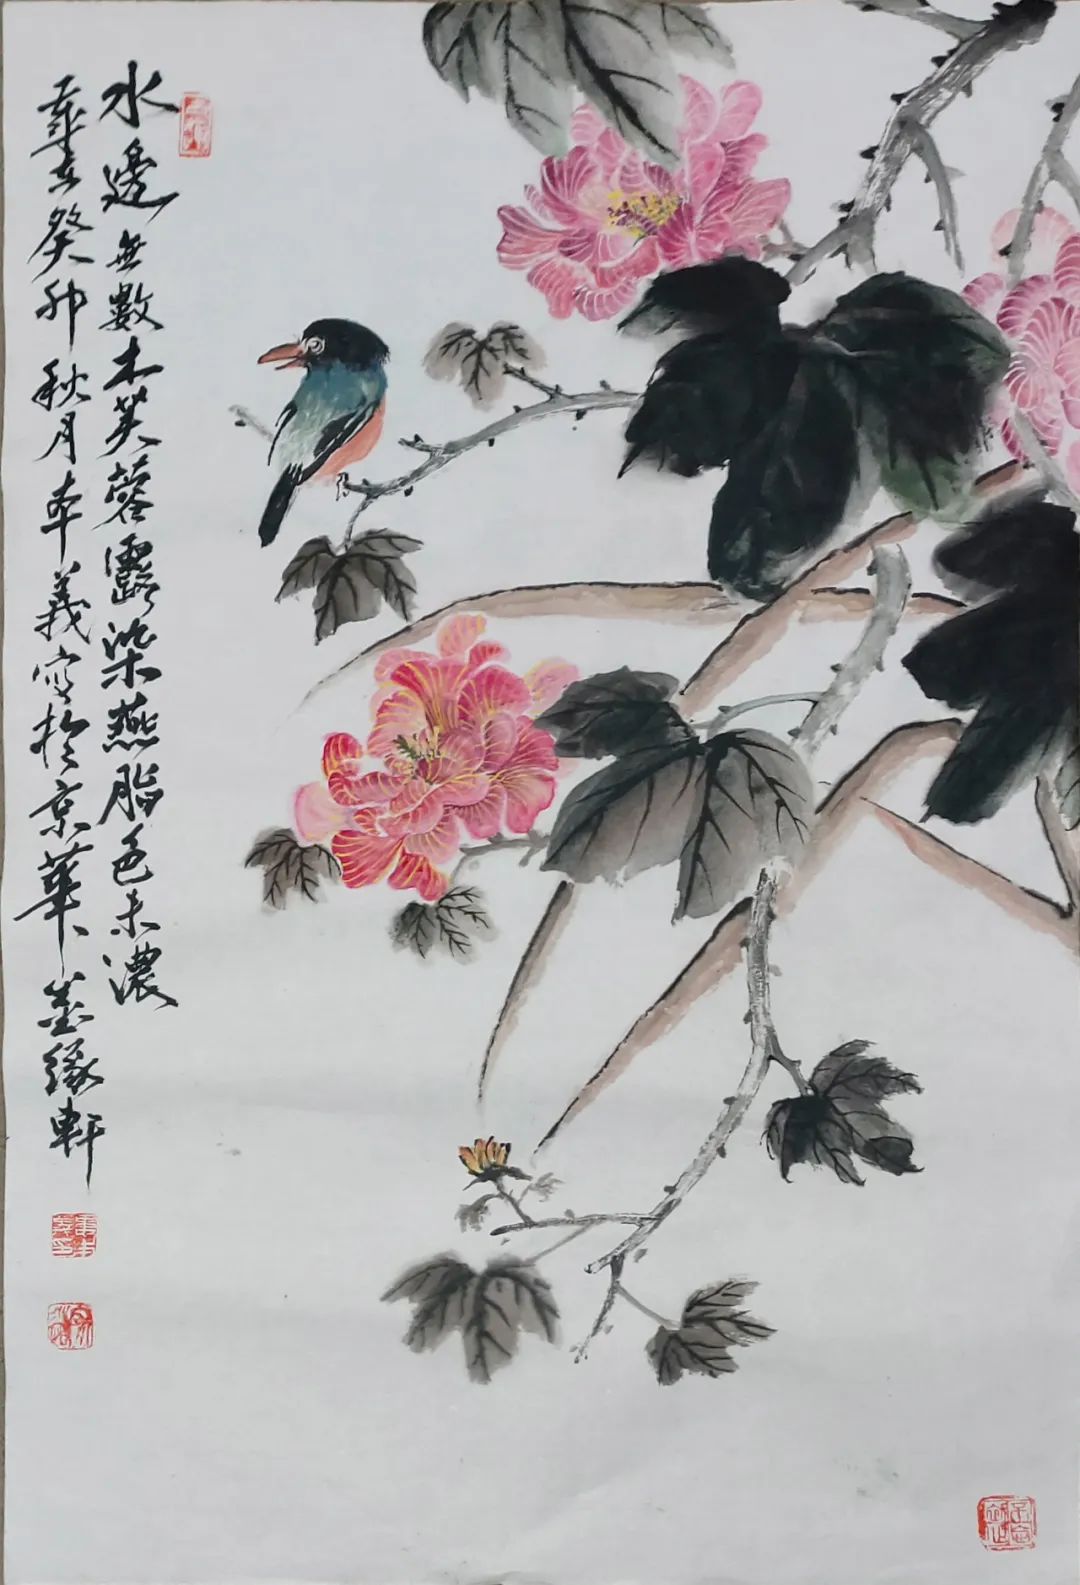 水邊無數木芙蓉露染燕脂色未濃
歲在癸卯秋月夲義写於京華墨緣軒